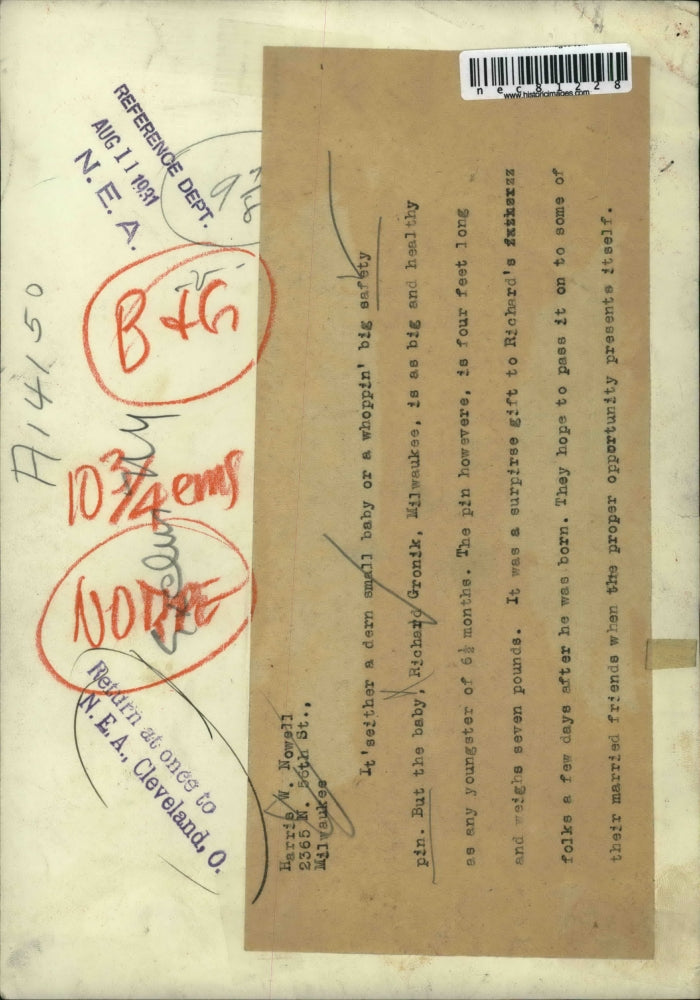 nec81228
www.historicimages.com
REFERENCE DEPT.
AUG 11 1931
N. E. A.
B & G
A14150
10 3/4 ems
Return at once to
N. E. A., Cleveland, O.
Harris W. Nowell
2365 N. 56th St.,
Milwaukee
It'seither a dern small baby or a whoppin' big safety
pin. But the baby, Richard Gronik, Milwaukee, is as big and healthy
as any youngster of 6½ months. The pin howevere, is four feet long
and weighs seven pounds. It was a surpirse gift to Richard's fatherzz
folks a few days after he was born. They hope to pass it on to some of
their married friends when the proper opportunity presents itself.